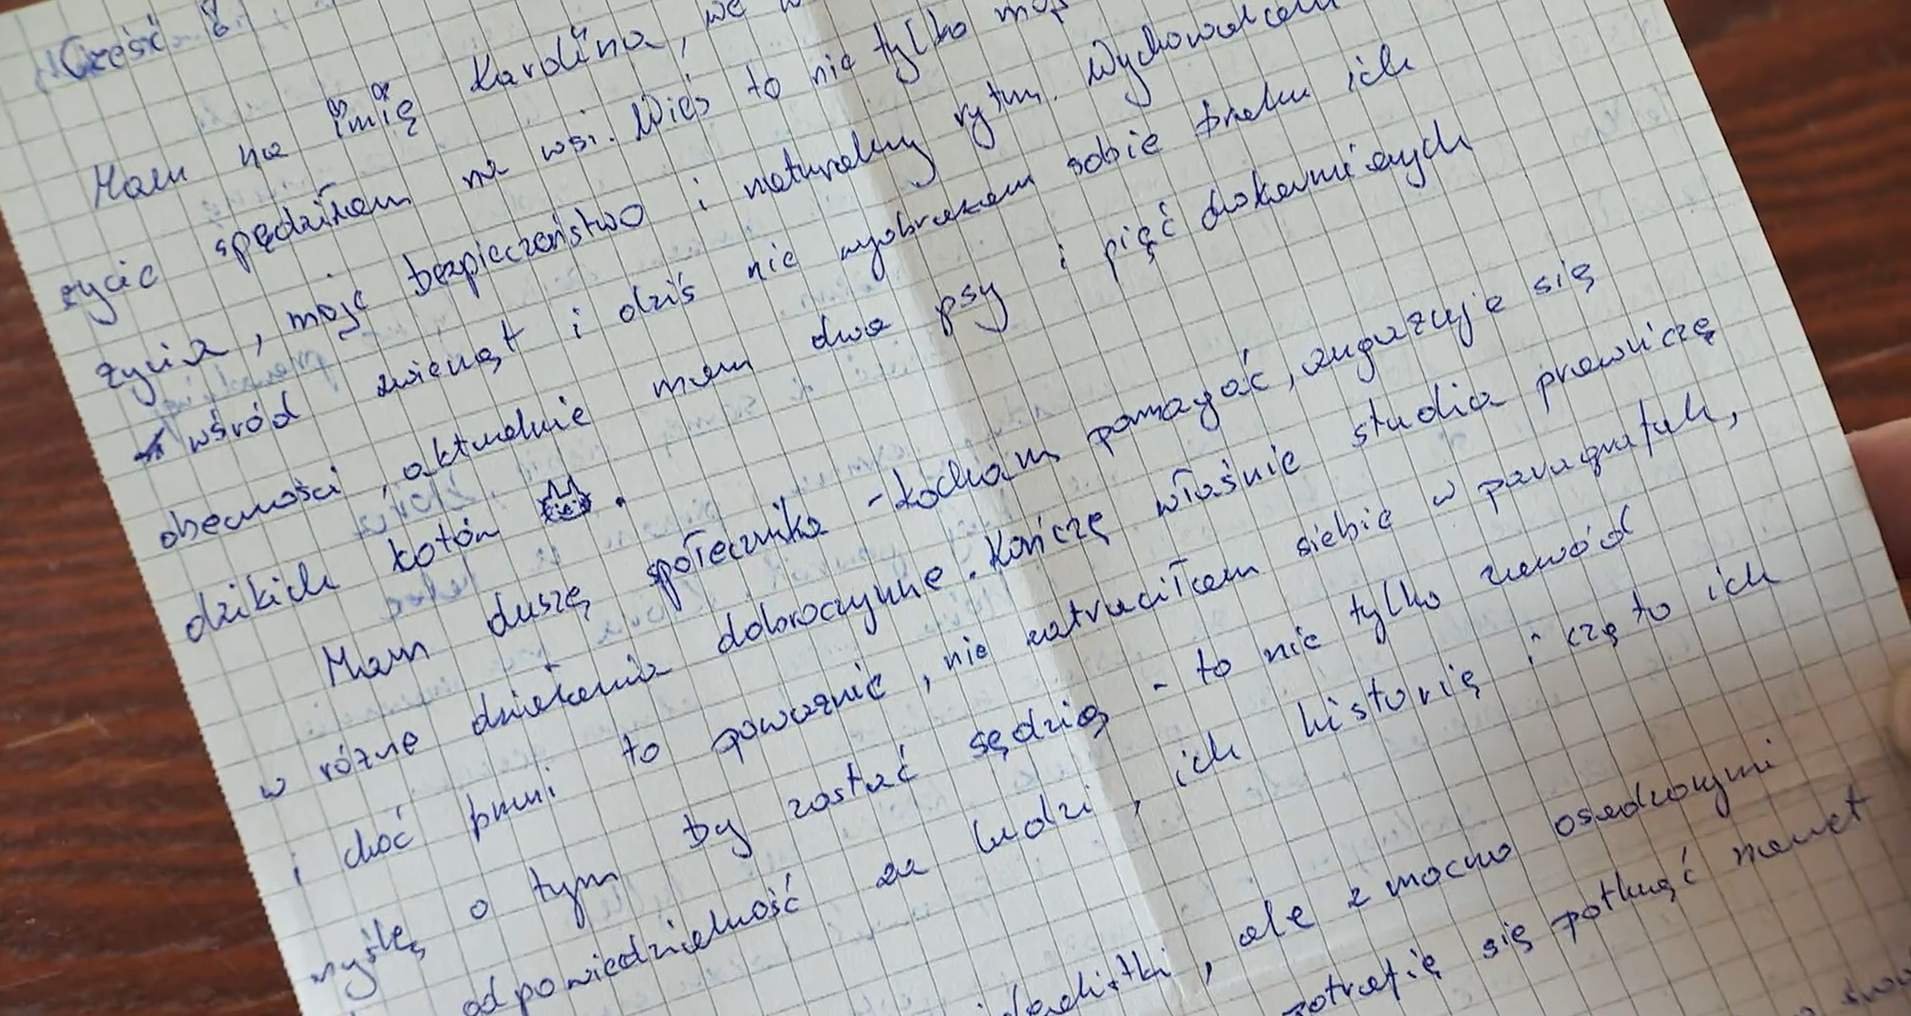 Cześć
Mam na imię Karolina, we
życie spędziłam na wsi. Wieś to nie tylko moj
życia, moje bezpieczeństwo i naturalny rytm. Wychowałam
wśród zwierząt i dziś nie wyobrażam sobie braku ich
obecności, aktualnie mam dwa psy i pięć dokarmianych
dzikich kotów.
Mam duszę społecznika - kocham pomagać, angażuję się
w różne działania dobroczynne. Kończę właśnie studia prawnicze
i choć brzmi to poważnie, nie zatraciłam siebie w paragrafach,
myślę o tym by zostać sędzią - to nie tylko zawód
odpowiedzialność za ludzi, ich historię i czę to ich
, ale z mocno osadzonymi
potrafię się potknąć nawet